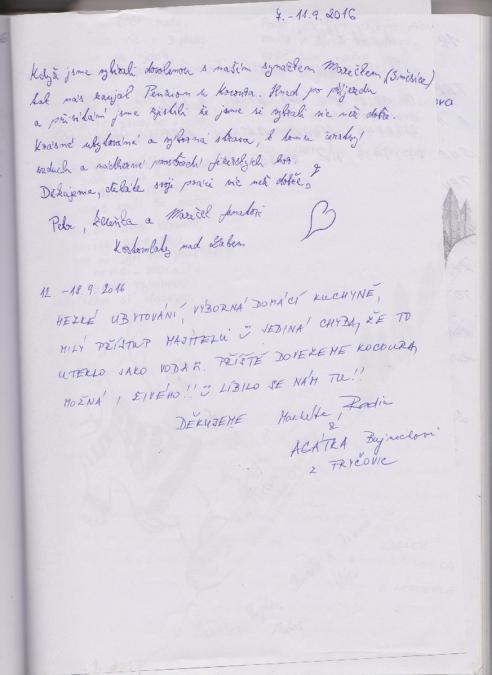 7.-11.9. 2016
Když jsme vybírali dovolenou s naším synáčkem Marečkem (3 měsíce)
tak nás zaujal Penzion u Kocoura. Hned po příjezdu
a přivítání jsme zjistili že jsme si vybrali víc než dobře.
Krásné ubytování a výborná strava, k tomu čerstvý
vzduch a nádherné prostředí Jizerských hor.
Děkujeme, děláte svoji práci víc než dobře!
Petr, a Mareček
Kostomlaty nad Labem
12. -18.9. 2016
HEZKÉ UBYTOVÁNÍ, VÝBORNÁ DOMÁCÍ KUCHYNĚ,
MILÝ PŘÍSTUP MAJITELŮ JEDINÁ CHYBA, ŽE TO
UTEKLO JAKO VODA. PŘÍŠTĚ DOVEZEME KOCOURA,
MOŽNÁ I ŽIVÉHO!! LÍBILO SE NÁM TU!!
DĚKUJEME Markéta, Radim
&
AGÁTKA
z FRYČOVIC